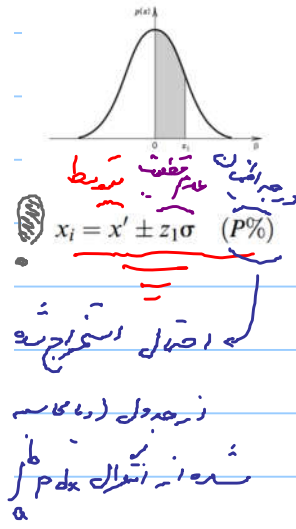 p(x)
0 z₁ β
متوسط عدم قطعیت درجه اطمینان
xᵢ = x′ ± z₁σ (P%)
احتمال استخراج شده
از جدول (یا محاسبه
شده از انتگرال ∫ₐᵇ p dx